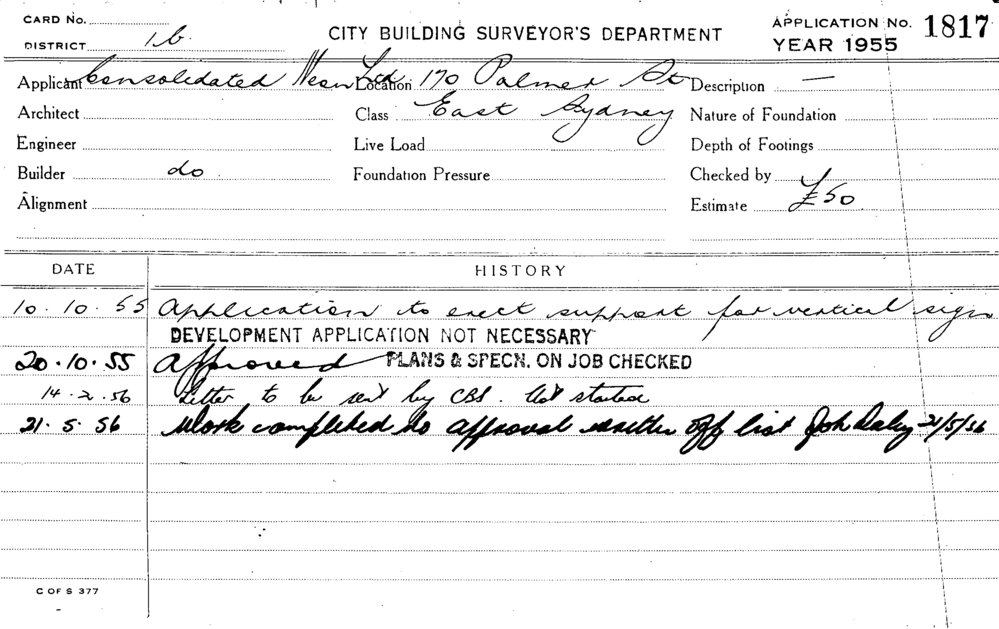 CARD No.
DISTRICT 1b.
CITY BUILDING SURVEYOR'S DEPARTMENT
APPLICATION No. 1817
YEAR 1955
Applicant Consolidated Neon Ltd Location 170 Palmer St Description —
Architect Class East Sydney Nature of Foundation
Engineer Live Load Depth of Footings
Builder do Foundation Pressure Checked by
Alignment Estimate £50
DATE HISTORY
10.10.55 Application to erect support for vertical sign
DEVELOPMENT APPLICATION NOT NECESSARY
20.10.55 Approved PLANS & SPECN. ON JOB CHECKED
14.2.56 Letter to be sent by CBS. Not started
21.5.56 Work completed to approval written off list 21/5/56
C OF S 377